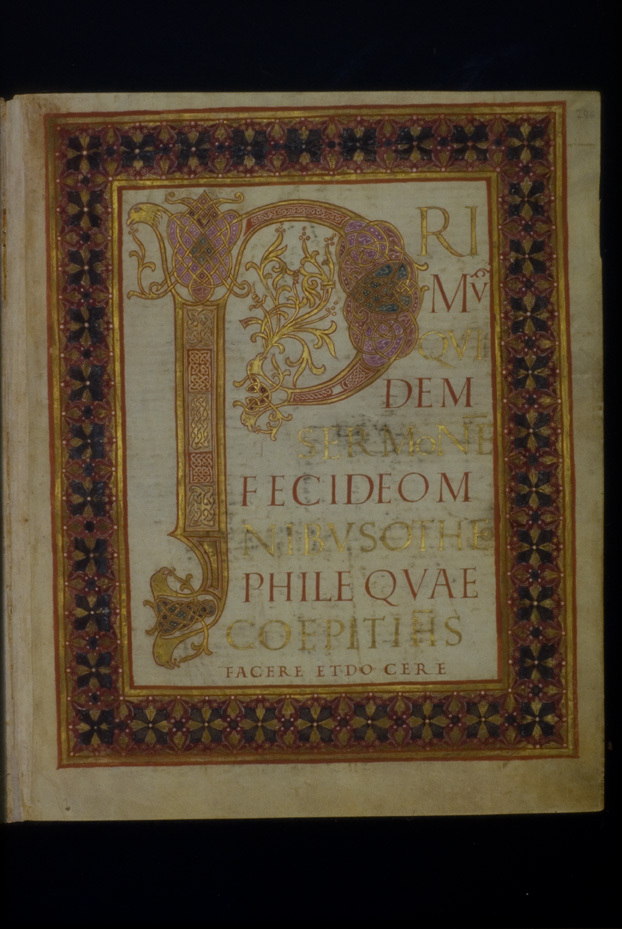 PRI
Mũ
QVI
DEM
SERMONE
FECIDEOM
NIBVSOTHEO
PHILE QVAE
COEPIT IHS
FACERE ET DOCERE